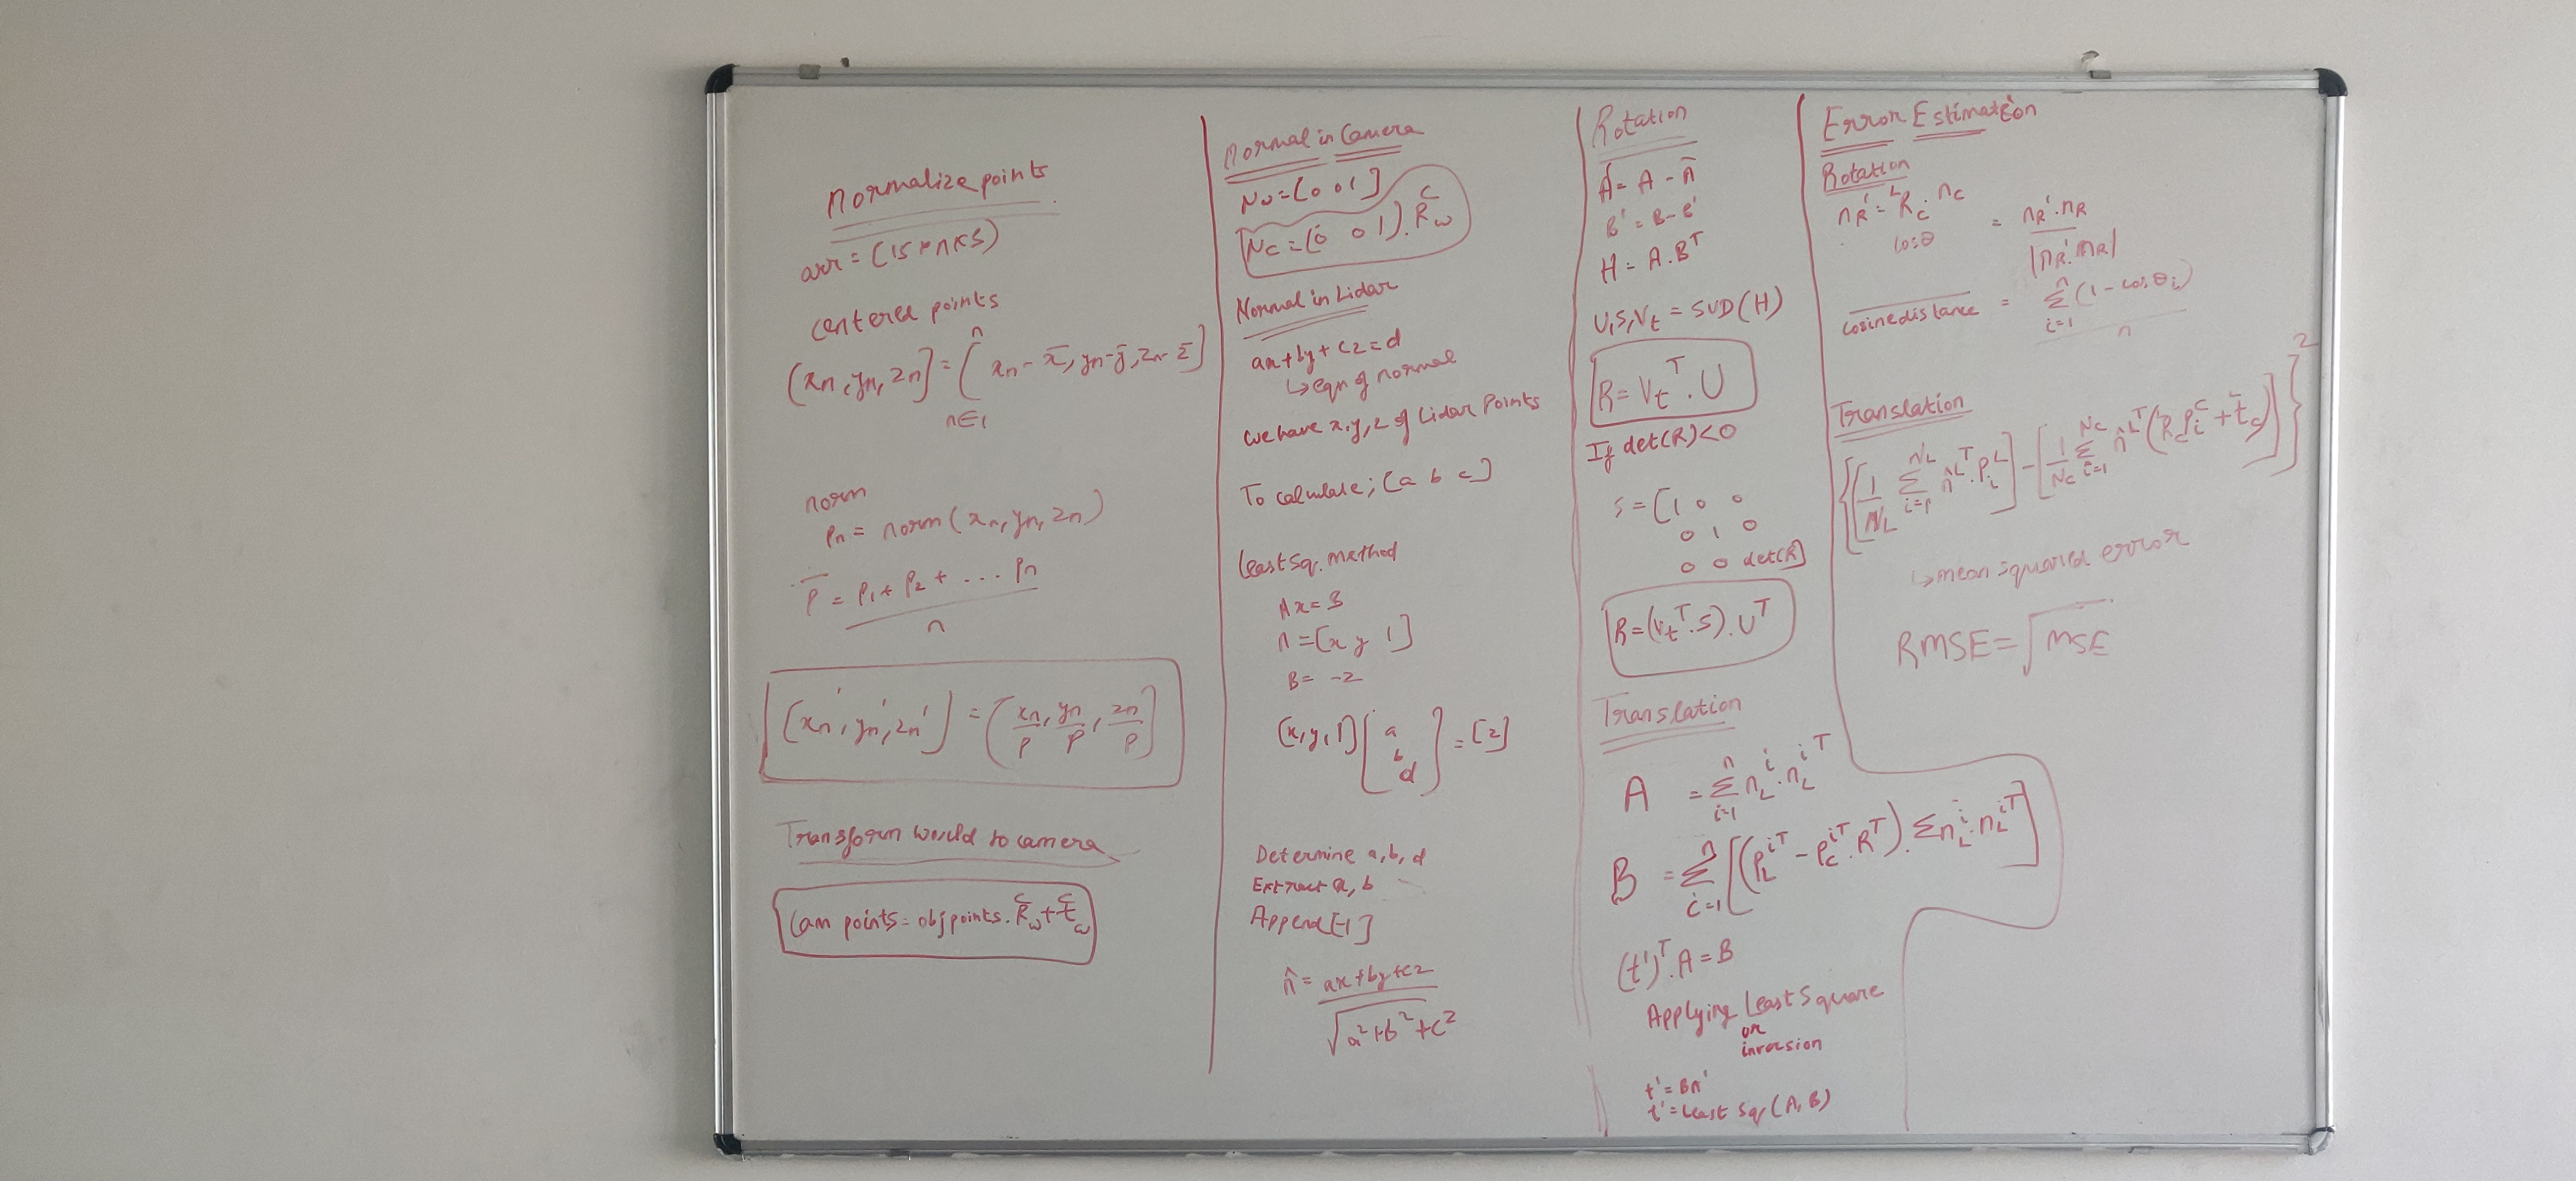 Normalize points
arr = (15 * n x 3)
centered points
(xn, yn, zn] = ( xn - x̄, yn - ȳ, zn - z̄ ]
n
n∈1
norm
Pn = norm (xn, yn, zn)
P̄ = P1 + P2 + ... Pn
n
[xn', yn', zn'] = ( xn/P, yn/P, zn/P ]
Transform world to camera
Cam points = obj points. Rwᶜ + twᶜ
Normal in Camera
Nw = [0 0 1]
Nc = [0 0 1]. Rwᶜ
Normal in Lidar
ax + by + cz = d
↳ eqn of normal
we have x, y, z of Lidar Points
To calculate; [a b c]
Least Sq. Method
Ax = B
A = [x y 1]
B = -z
(x, y, 1] [a b d] = [z]
Determine a, b, d
Extract a, b
Append [-1]
n̂ = ax + by + cz
√a² + b² + c²
Rotation
A' = A - Ā
B' = B - B'
H = A.Bᵀ
U, S, Vt = SVD (H)
R = Vtᵀ . U
If det(R) < 0
S = [1 0 0
0 1 0
0 0 det(R)]
R = (Vtᵀ . S) . Uᵀ
Translation
A = Σ nLⁱ . nLⁱᵀ
n
i=1
B = Σ [(PLⁱᵀ - Pcⁱᵀ . Rᵀ) . Σ nLⁱ . nLⁱᵀ]
n
i=1
(t')ᵀ . A = B
Applying Least Square
or
inversion
t' = BA'
t' = Least Sq, (A, B)
Error Estimation
Rotation
nR' = ᴸRc . nc
cosθ = nR' . nR
|nR' . nR|
cosine distance = Σ (1 - cosθi)
n
i=1
n
Translation
{[1/NL Σ n̂ᴸᵀ . Piᴸ] - [1/Nc Σ n̂ᴸᵀ (ᴸRc Piᶜ + ᴸtc)]}²
↳ mean squared error
RMSE = √MSE